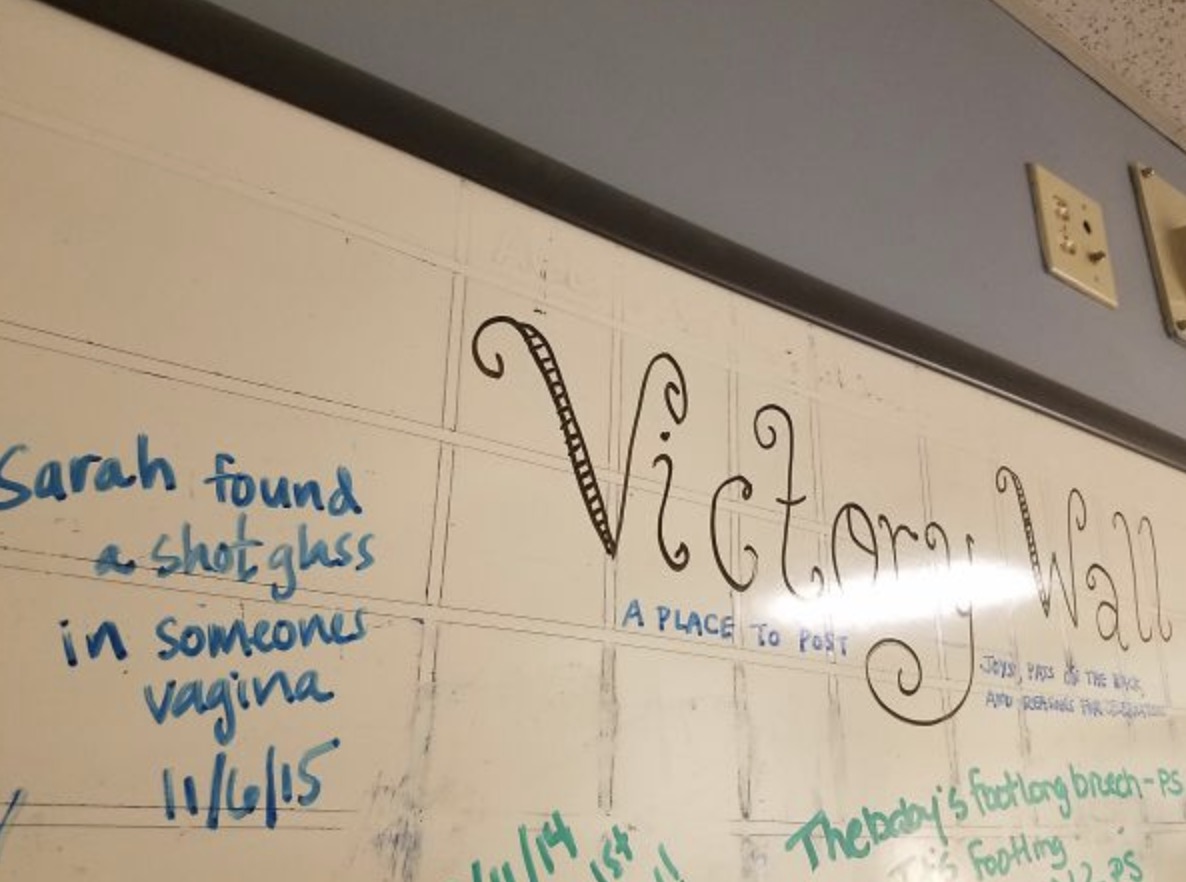 Sarah found
a shot glass
in someones
vagina
11/6/15
Victory Wall
A PLACE TO POST
JOYS, PATS ON THE BACK,
AND REASONS FOR CELEBRATION
The baby's footlong breech-PS
It's footling
/11/14
1st